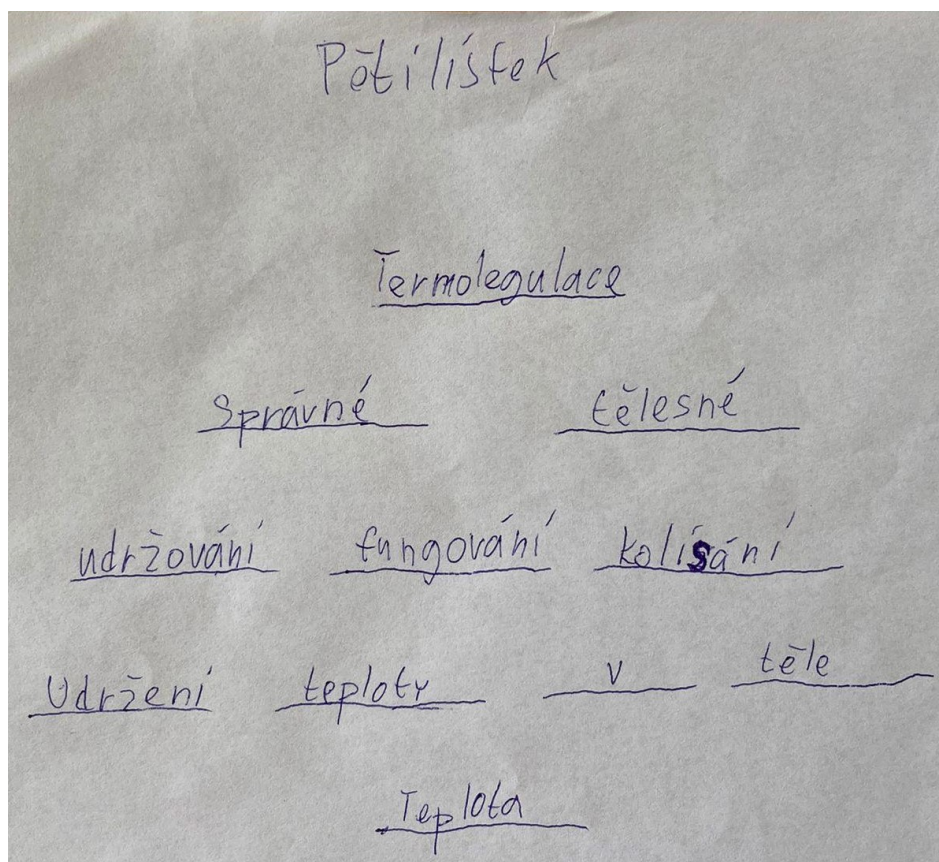 Pětilístek
Termolegulace
Správné tělesné
udržování fungování kolísání
Udržení teploty v těle
Teplota